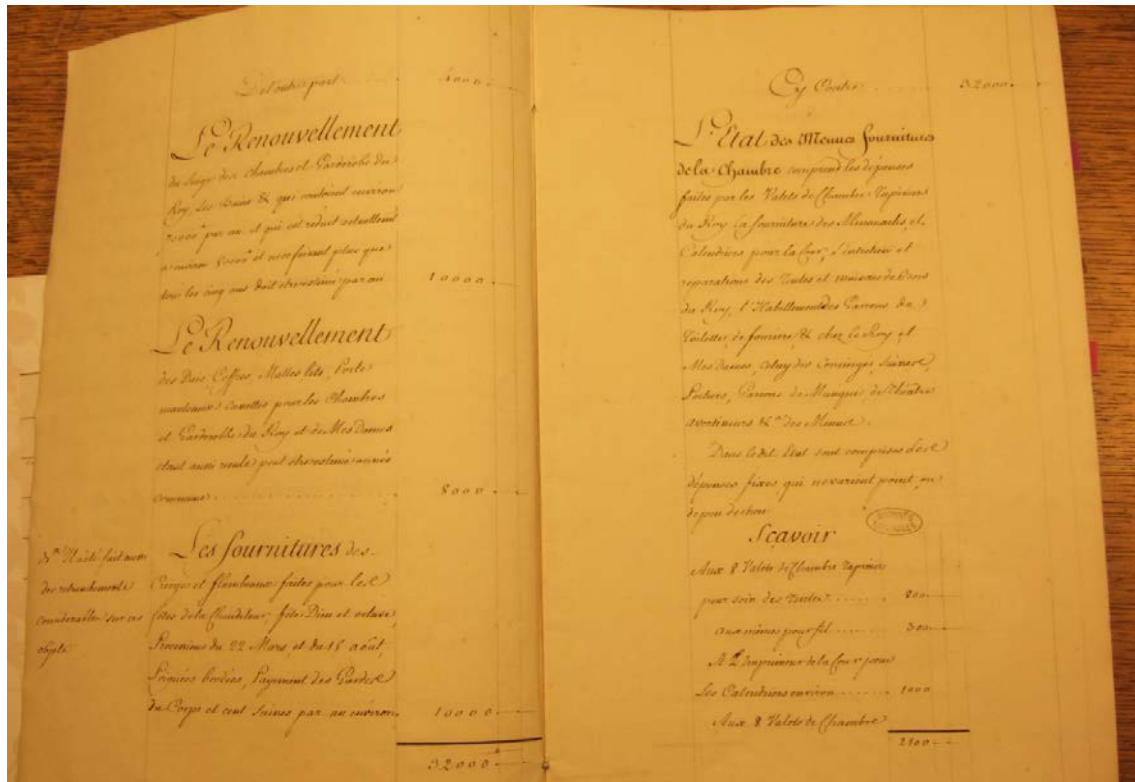 De l'autre part 4000
Le Renouvellement
du linge des Chambres et Garderobe du
Roy, Les Bains & qui coutoient environ
par an et qui est reduit actuellement
a environ et ne se faisant plus que
tous les cinq ans doit etre estimé par an 10000
Le Renouvellement
des Dais, Coffres, Malles, lits, Porte
manteaux Cuvettes pour les Chambres
et Garderobbe du Roy et de Mes Dames
étant aussi reculé peut etre estimé année
commune 8000
Nta Il a été fait
des retranchements
considerables sur ces
objets
Les fournitures des
Cierges et flambeaux faites pour les
fêtes de la Chandeleur, fête Dieu et octave,
Processions du 22 Mars, et du 15 août,
bordées, Payement des Gardes
du Corps et cent Suisses par an environ 10000
32000
Cy Contre 32000
L'Etat des Menues fournitures
de la Chambre comprend les depenses
faites par les Valets de Chambre Tapissiers
du Roy la fourniture des Almanachs, et
Calendriers pour la Cour, l'entretien et
reparations des Tentes et maisons de bois
du Roy, l'Habillement des Garcons de
Toilette, de fourriere, & chez le Roy et
Mes Dames, celuy des Concierges, Suisses
Portiers, Garcons de Musique, de Théatre
avertisseurs & des Menus.
Dans ledit Etat sont comprises des
depenses fixes qui ne varient point, ou
de peu de chose
Sçavoir
Aux 8 Valets de Chambre Tapissiers
pour soin des Tentes 800
aux mêmes pour fil 300
A L'Imprimeur de la Cour pour
Les Calendriers environ 1000
Aux 8 Valets de Chambre
2100